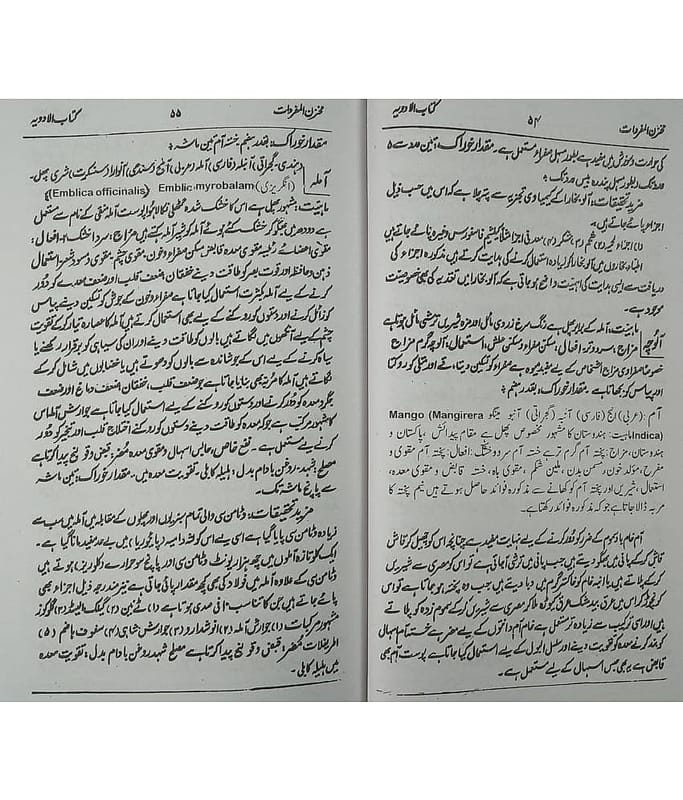 کتاب الادویہ ۵۴ مخزن المفردات
کی حرارت و خورش میں مفید ہے بطور مسہل صفراء مستعمل ہے۔ مقدار خوراک: تین دانہ سے ۵
دانہ تک اور بطور مسہل پندرہ بیس دانہ تک ؛
مزید تحقیقات: آلو بخارا کے کیمیاوی تجزیہ سے پتہ چلا ہے کہ اس میں حسب ذیل
اجزاء پائے جاتے ہیں۔
(۱) اجزاء لحمیہ (۲) شحم (۳) شکر (۴) معدنی اجزاء مثلاً کیلشیم فاسفورس وغیرہ پائے جاتے ہیں
اطباء بخاروں میں آلو بخارا کو زیادہ استعمال کرنے کی ہدایت کرتے ہیں مذکورہ اجزاء کی
دریافت سے ایسی ہدایت کی اہمیت واضح ہو جاتی ہے کہ آلو بخارا میں تغذیہ کی بھی خصوصیت
موجود ہے۔
آلوچہ ماہیت: آملہ کے برابر پھل ہے رنگ سرخ زردی مائل اور مزہ شیریں ترشی مائل ہوتا ہے
مزاج: سرد و تر: افعال: مسکن صفراء و مسکن عطش، استعمال: آلوچہ گرم مزاج
خصوصاً صفراوی مزاج اشخاص کے لیے مفید میوہ ہے صفراء کو تسکین دیتا قے اور متلی کو روکتا
اور پیاس کو بجھاتا ہے۔ مقدار خوراک: بقدر ہضم ؛
آم : (عربی) انج (فارسی) آنبہ (گجراتی) آنبو مینگو Mango (Mangirera
Indica) ماہیت: ہندوستان کا مشہور مخصوص پھل ہے مقام پیدائش ، پاکستان و
ہندوستان، مزاج: پختہ آم گرم تر ہے خنتہ آم سرد و خشک: افعال: پختہ آم مقوی و
مفرح، مولد خون، مسمن بدن، ملین شکم، مقوی باہ، خستہ قابض و مقوی معدہ،
استعمال: شیریں اور پختہ آم کو کھانے سے مذکورہ فوائد حاصل ہوتے ہیں نیم پختہ کا
مربہ ڈالا جاتا ہے جو کہ مذکورہ فوائد رکھتا ہے۔
آم خام بادِ سموم کے ضرر کو دور کرنے کے لیے نہایت مفید ہے چنانچہ اس کو چھیل کر قاش
قاش کر کے پانی میں بھگو دیتے ہیں جب پانی میں ترشی آجاتی ہے تو اس کو مصری سے شیریں
کر کے پلاتے ہیں یا آنبہ خام کو خاکستر گرم میں دبا دیتے ہیں جب وہ پختہ ہو جاتا ہے تو اس
کو نچوڑ کر اس میں عرق بید مشک عرق کیوڑہ ملا کر مصری سے شیریں کر کے سموم زدہ کو پلاتے
ہیں اور اسی ترکیب سے زیادہ تر مستعمل ہے خام آم دانتوں کے لیے مضر ہے خستہ آم اسہال
کو بند کرنے معدہ کو تقویت دینے اور سلسل البول کے لیے استعمال کیا جاتا ہے پوست آم بھی
قابض ہے یہ بھی حبس اسہال کے لیے مستعمل ہے۔
کتاب الادویہ ۵۵ مخزن المفردات
مقدار خوراک: بقدر ہضم خستہ آم تین ماشہ ؛
آملہ (ہندی۔ گجراتی) آنبلہ (فارسی) آملہ (عربی) آملج (سندھی) آنوارا (سنسکرت) شری پھل۔
(انگریزی) Emblic-myrobalam (Emblica officinalis)
ماہیت: مشہور پھل ہے اس کا خشک شدہ گٹھلی نکالا ہوا پوست آملہ منقی کے نام سے مستعمل
ہے دودھ میں بھگو کر خشک کئے ہوئے آملہ کو شیر آملہ کہتے ہیں مزاج: سرد و خشک: افعال:
مقوی اعضائے رئیسہ مقوی معدہ قابض مسکن صفراء و خون، مقوی چشم مقوی و مسود شعر استعمال
ذہن و حافظہ اور قوت بصر کو طاقت دینے خفقان، ضعف قلب اور ضعف معدہ کو دور
کرنے کے لیے آملہ بکثرت استعمال کیا جاتا ہے صفراء و خون کے جوش کو تسکین دینے پیاس
کو زائل کرنے اور دستوں کو روکنے کے لیے بھی استعمال کرتے ہیں آملہ کا عصارہ تیار کر کے تقویت
چشم کے لیے آنکھوں میں لگاتے ہیں بالوں کو طاقت دینے اور ان کی سیاہی کو برقرار رکھنے یا
سیاہ کرنے کے لیے اس کے جوشاندہ سے بالوں کو دھوتے ہیں یا خضابوں میں شامل کر کے
لگاتے ہیں آملہ کا مربہ بھی بنایا جاتا ہے جو ضعف قلب، خفقان ضعف دماغ اور ضعف
جگر و معدہ کو دور کرنے اور دستوں کو روکنے کے لیے استعمال کیا جاتا ہے جوارش آملہ اس
کا مشہور مرکب ہے جو کہ معدہ کو طاقت دینے دستوں کو روکنے اختلاج قلب اور تبخیر کو دور
کرنے کے لیے مستعمل ہے۔ نفع خاص، حابس اسہال و مقوی معدہ مضر: قبض و قولنج پیدا کرتا ہے
مصلح: شہد، روغن بادام بدل: ہلیلہ کابلی۔ تقویت معدہ میں۔ مقدار خوراک: تین ماشہ
سے پانچ ماشہ تک۔
مزید تحقیقات: وٹامن سی والی تمام سبزیوں اور پھلوں کے مقابلہ میں آملہ میں سب سے
زیادہ وٹامن سی پایا گیا ہے اسی لیے اس کو لثہ دامیہ (پائیوریا) میں بے حد مفید مانا گیا ہے۔
ایک کلو تازہ آملوں میں چھ ہزار یونٹ وٹامن سی اور پانچ سو حرارے (کلوریز) ہوتے ہیں
وٹامن سی کے علاوہ آملہ میں فولاد کی بھی کچھ مقدار پائی جاتی ہے نیز مندرجہ ذیل اجزاء بھی
پائے جاتے ہیں جن کا تناسب ۲۰ فی صدی ہوتا ہے (۱) ٹے نین (۲) گیلک ایسڈ (۳) گلوکوز
مشہور مرکبات (۱) جوارش آملہ (۲) انوشدارو (۳) جوارش شاہی (۴) سفوف ہاضم (۵)
اطریفلات مضر: قبض و قولنج پیدا کرتا ہے مصلح شہد روغن بادام بدل: تقویت معدہ
میں ہلیلہ کابلی۔